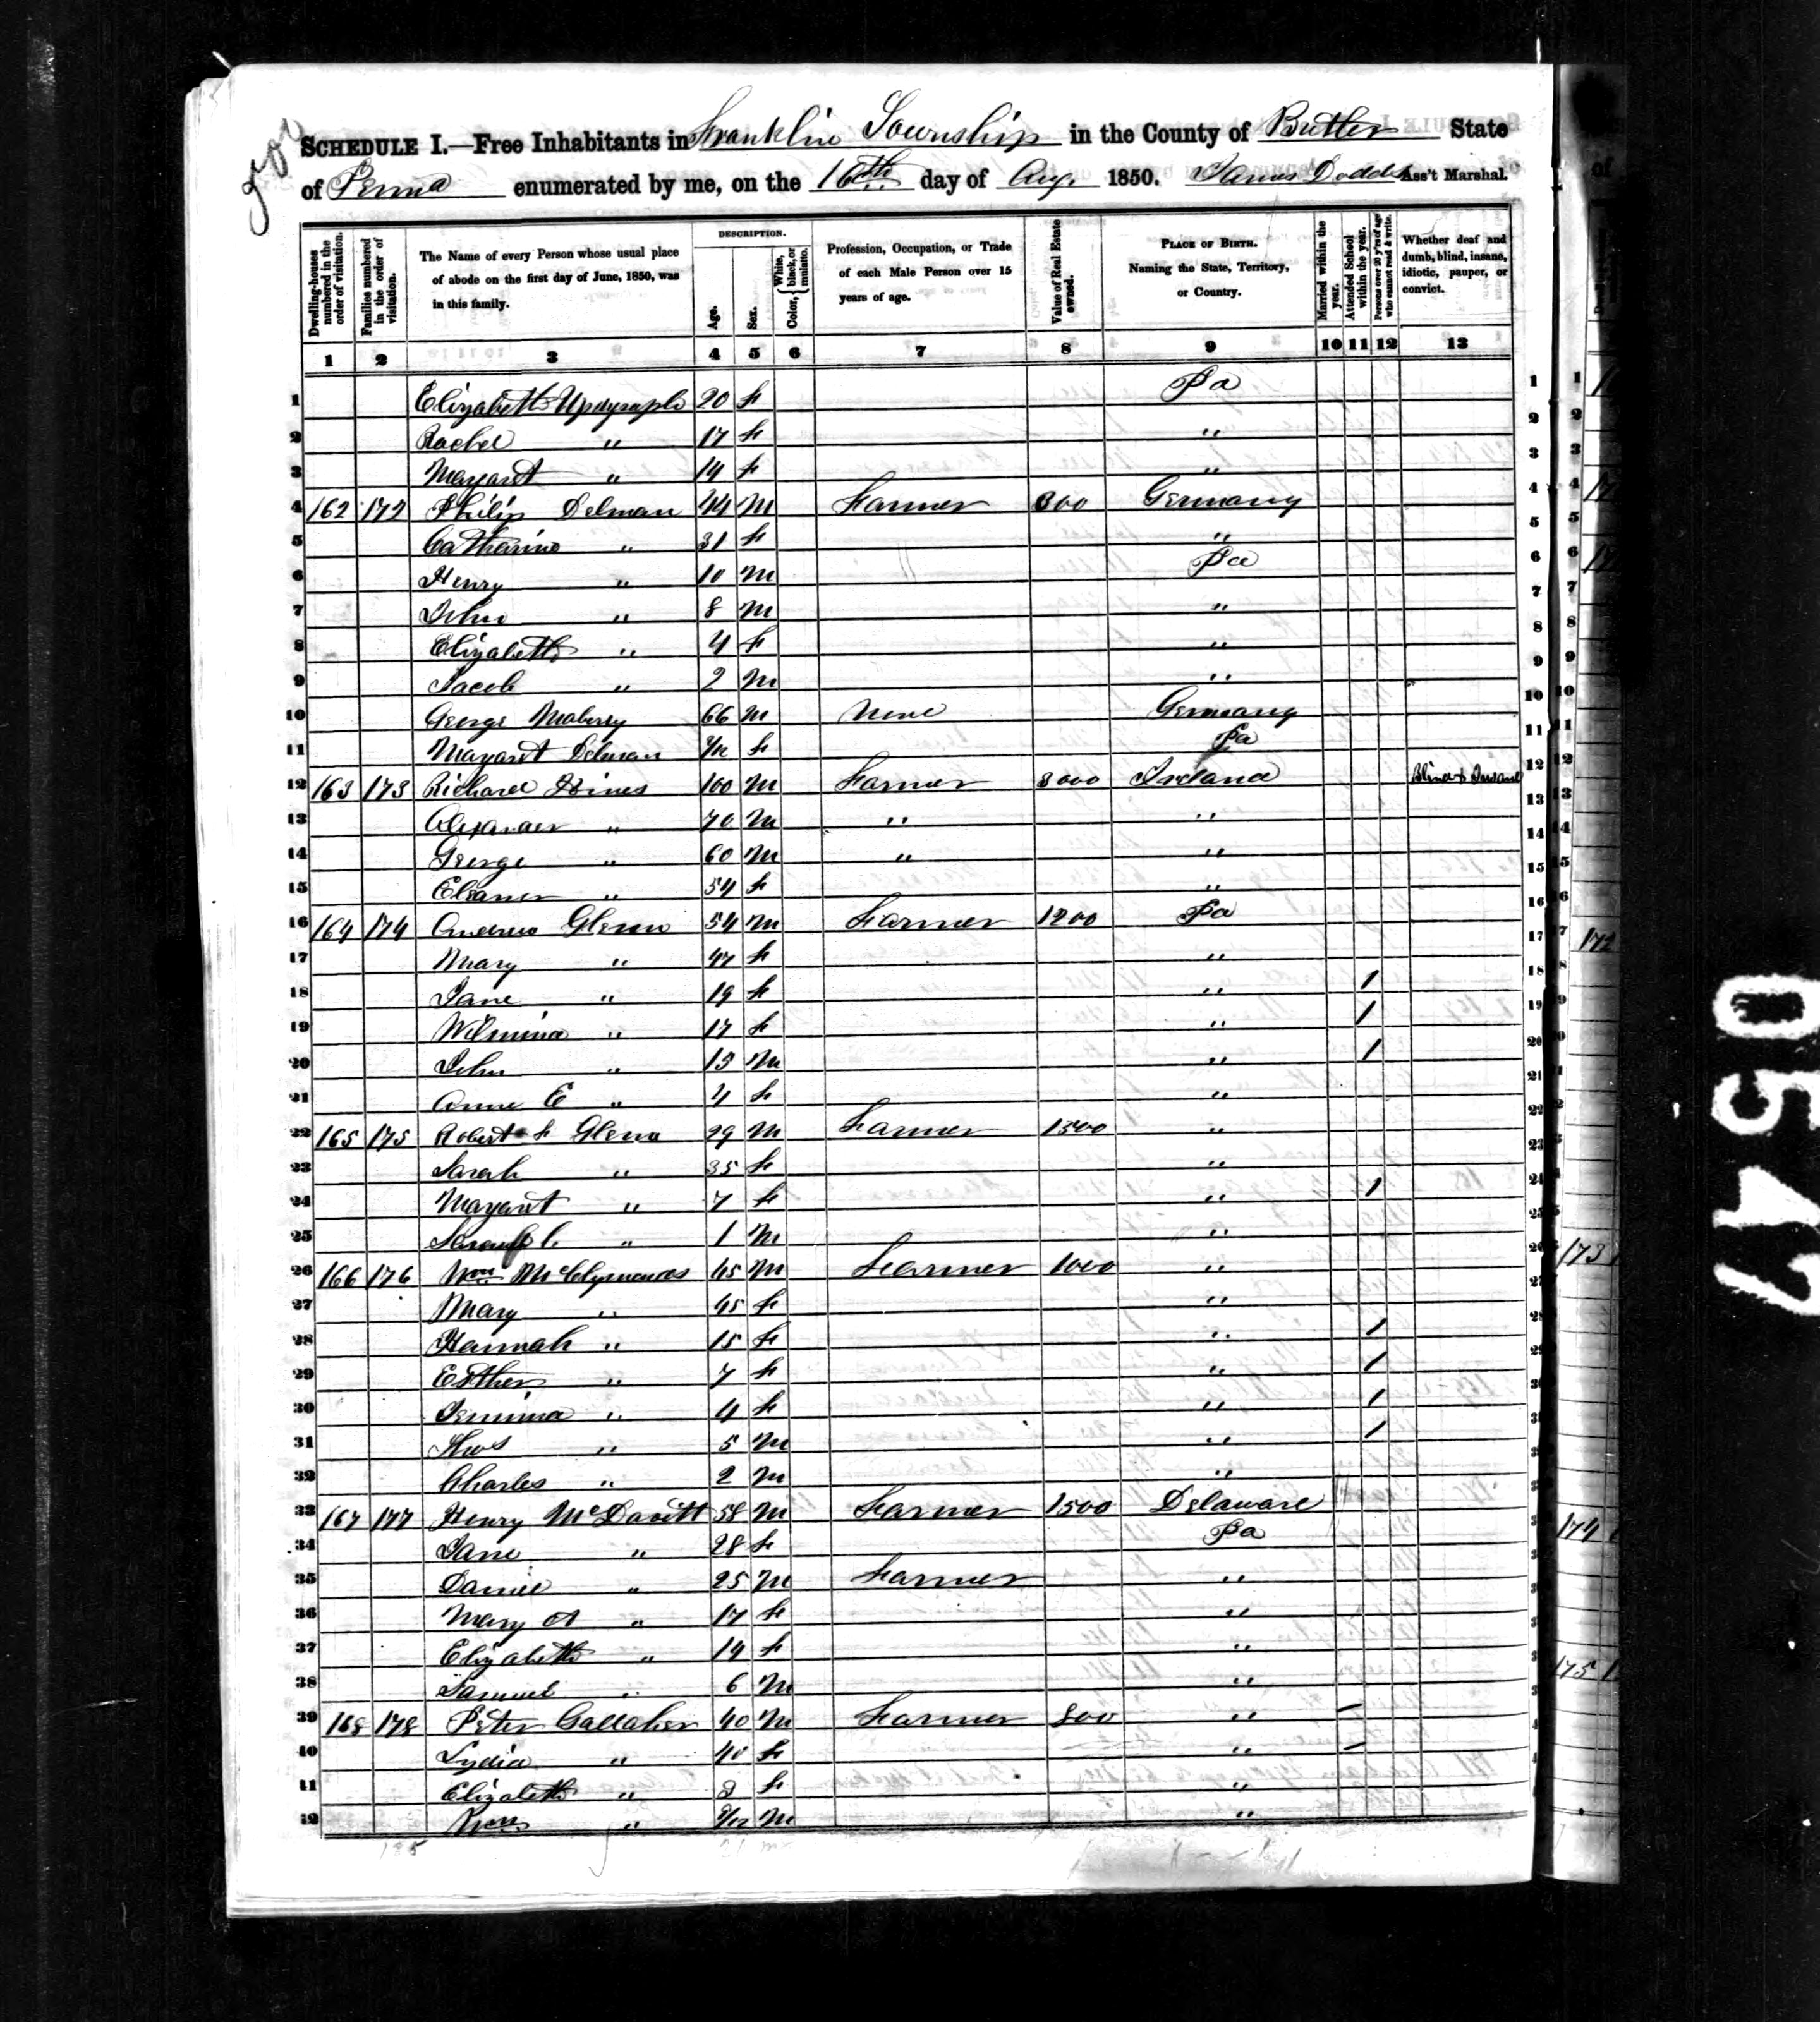 SCHEDULE I.—Free Inhabitants in Franklin Township in the County of Butler State
of Penna enumerated by me, on the 16th day of Aug. 1850. James Dodds Ass't Marshal.
Dwelling-houses numbered in the order of visitation.
Families numbered in the order of visitation.
The Name of every Person whose usual place of abode on the first day of June, 1850, was in this family.
DESCRIPTION.
Age.
Sex.
Color, { White, black, or mulatto.
Profession, Occupation, or Trade of each Male Person over 15 years of age.
Value of Real Estate owned.
PLACE OF BIRTH. Naming the State, Territory, or Country.
Married within the year.
Attended School within the year.
Persons over 20 y'rs of age who cannot read & write.
Whether deaf and dumb, blind, insane, idiotic, pauper, or convict.
1 2 3 4 5 6 7 8 9 10 11 12 13
1 Elizabeth 20 f Pa 1
2 Rachel " 17 f " 2
3 Margaret " 14 f " 3
4 162 172 Philip Delman 44 M Farmer 300 Germany 4
5 Catharine " 31 f " 5
6 Henry " 10 M Pa 6
7 John " 8 M " 7
8 Elizabeth " 4 f " 8
9 Jacob " 2 M " 9
10 George Maberry 66 M None Germany 10
11 Margaret Delman f Pa 11
12 163 173 Richard Hines 100 M Farmer 3000 Ireland Blind & Insane 12
13 Alexander " 70 M " " 13
14 George " 60 M " " 14
15 Eleanor " 54 f " 15
16 164 174 Andrew Glenn 54 M Farmer 1200 Pa 16
17 Mary " 47 f " 17
18 Jane " 19 f " / 18
19 Wilmina " 17 f " / 19
20 John " 13 M " / 20
21 Anne E " 4 f " 21
22 165 175 Robert F Glenn 29 M Farmer 1300 " 22
23 Sarah " 35 f " 23
24 Margaret " 7 f " / 24
25 C. " 1 M " 25
26 166 176 Wm McClymonds 45 M Farmer 1000 " 26
27 Mary " 45 f " 27
28 Hannah " 15 f " /
29 Esther " 7 f " /
30 Jemima " 4 f " /
31 Thos " 5 M " /
32 Charles " 2 M "
33 167 177 Henry McDavitt 58 M Farmer 1500 Delaware
34 Jane " 28 f Pa
35 Daniel " 25 M Farmer "
36 Mary A " 17 f "
37 Elizabeth " 14 f "
38 Samuel " 6 M "
39 168 178 Peter Gallaher 40 M Farmer 800 " /
40 Lydia " 40 f " /
41 Elizabeth " 3 f "
42 Wm " M "
0547